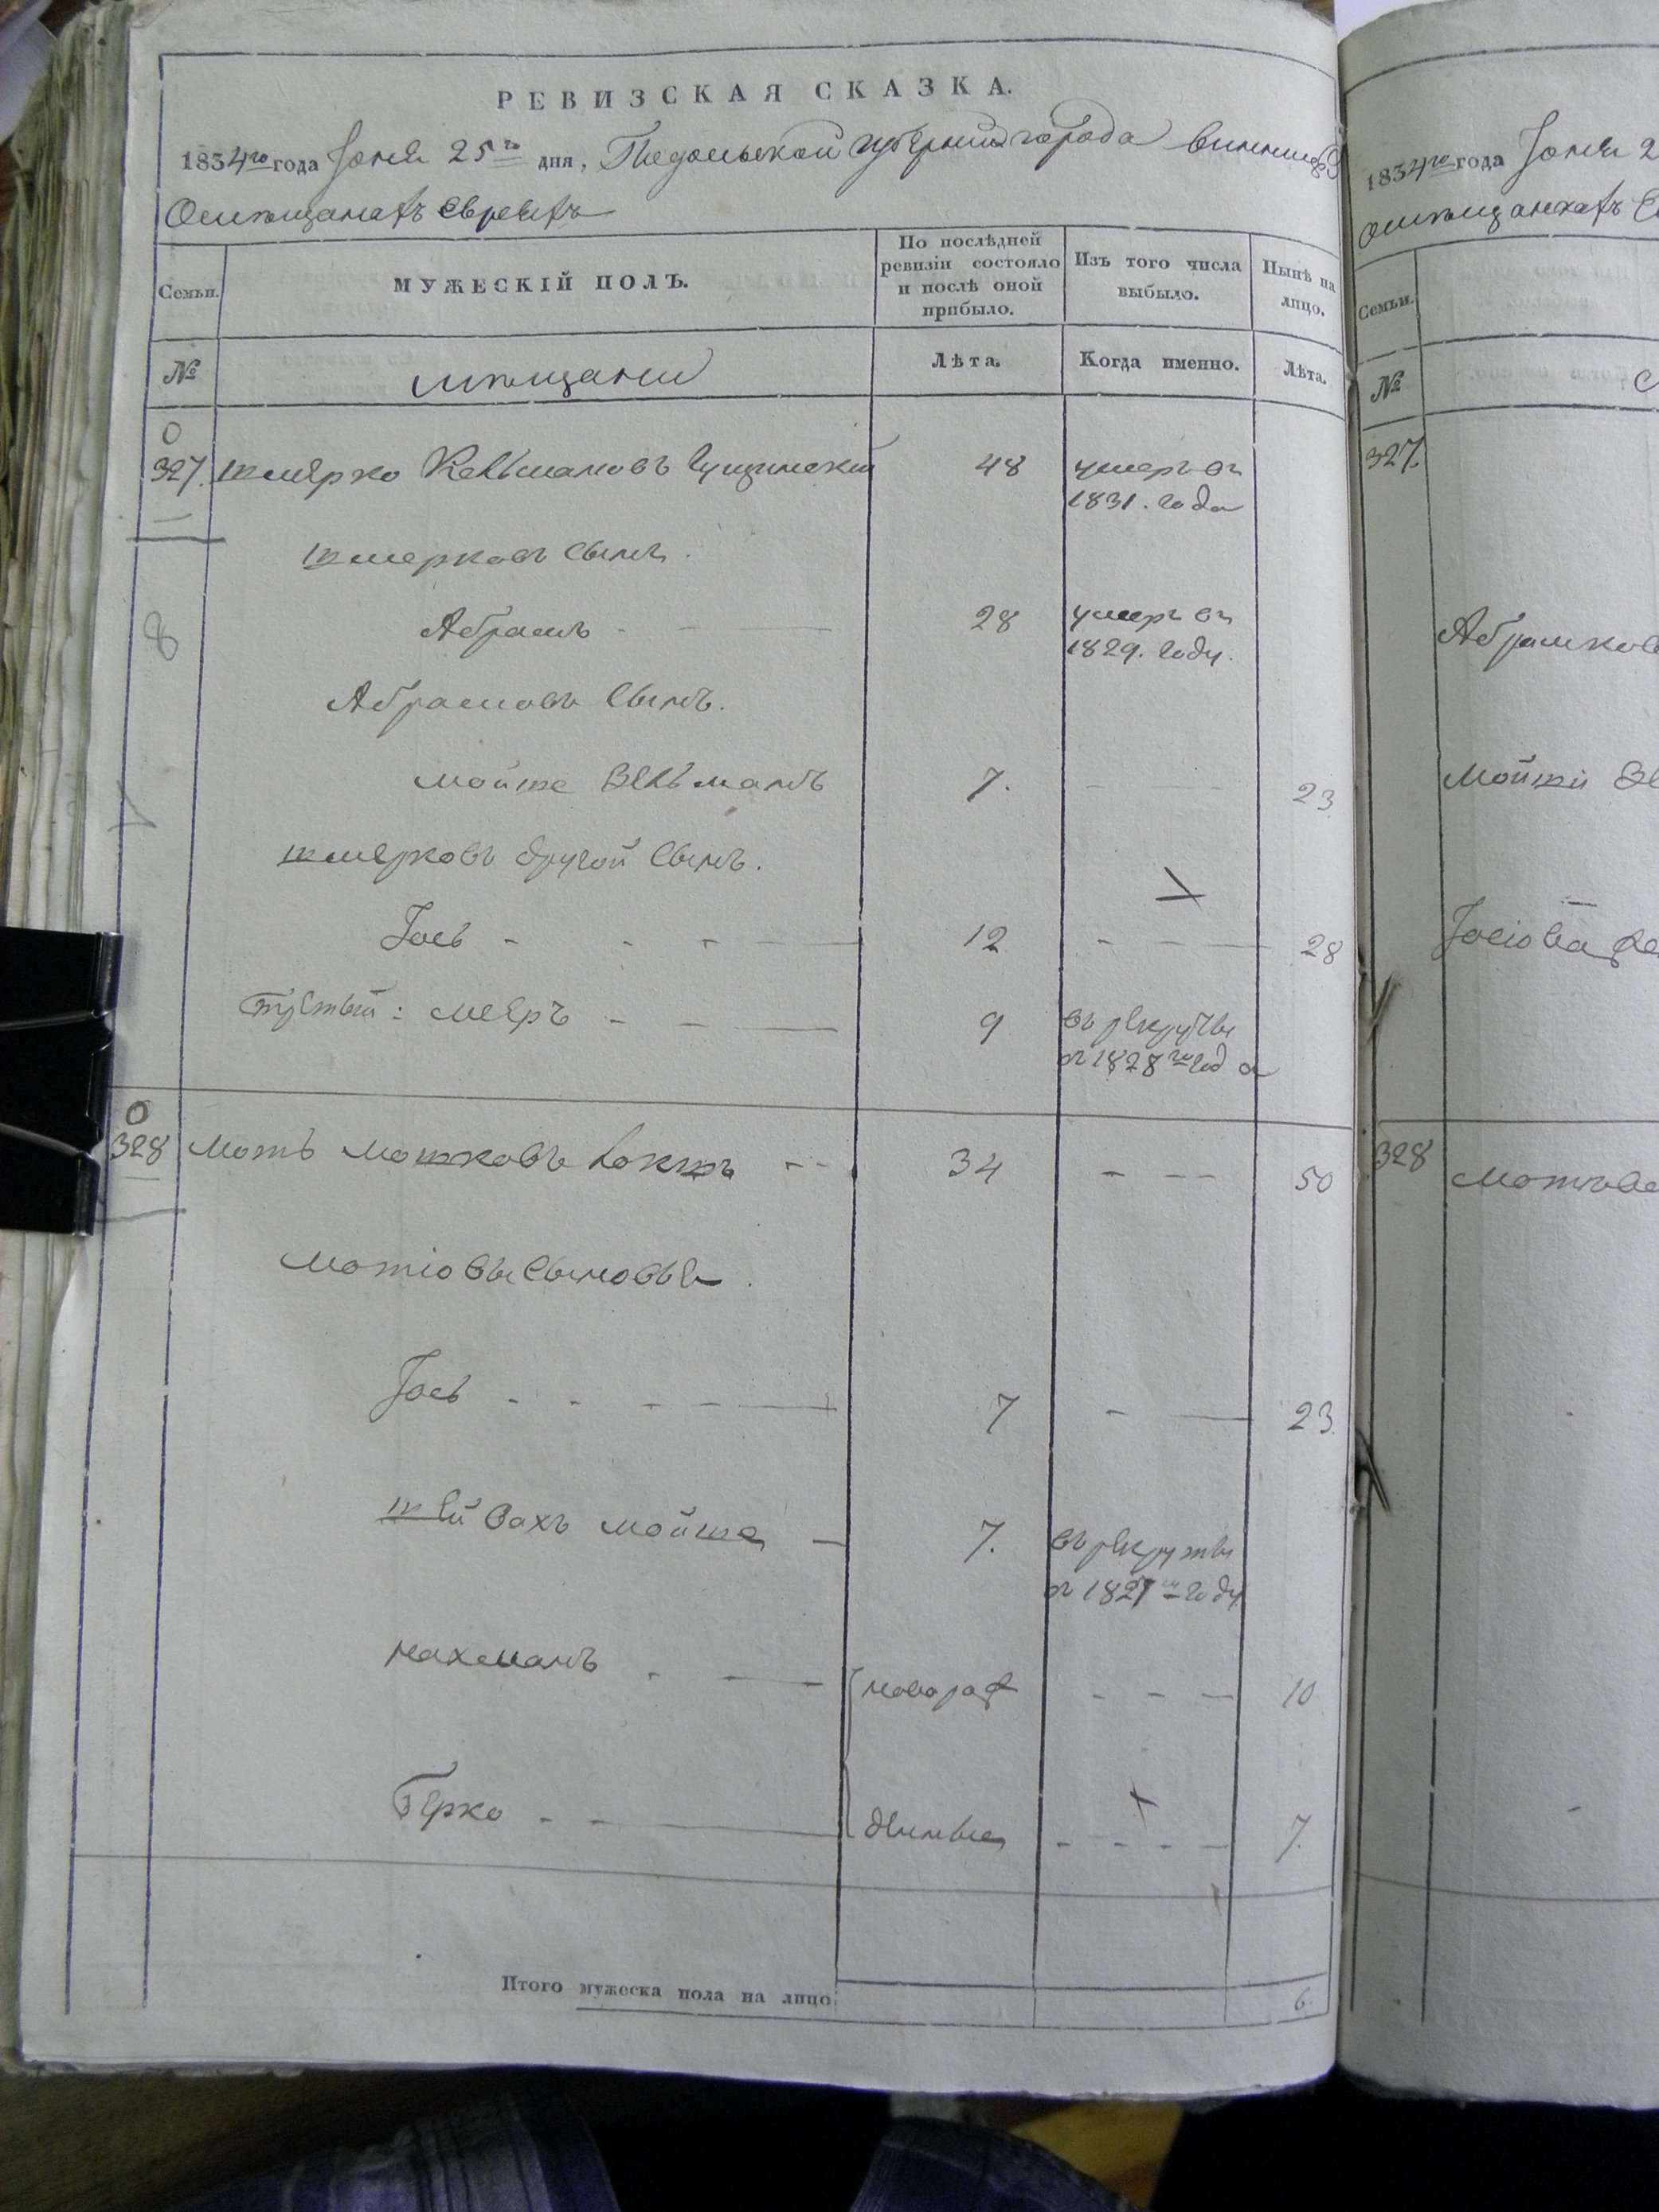 РЕВИЗСКАЯ СКАЗКА.
1834го года Іюня 25го дня, Подольской губерніи города Винницы
О мѣщанахъ евреяхъ
Семьи. МУЖЕСКІЙ ПОЛЪ. По послѣдней ревизіи состояло и послѣ оной прибыло. Изъ того числа выбыло. Нынѣ на лицо.
№ мѣщане Лѣта. Когда именно. Лѣта.
327. Шмерко Кельмановъ 48 умеръ въ
1831. года
Шмерковъ сынъ.
Абрамъ 28 умеръ въ
1829. году.
Абрамовъ сынъ.
Мойше Зельманъ 7. 23
Шмерковъ другой сынъ.
Іось 12 28
Третьій: Мееръ 9 въ рекруты
въ 1828го года
328 Моть Мошковъ 34 50
Мотіовы сыновья.
Іось 7 23.
Шейвахъ Мойше 7. въ рекруты
въ 1827м году
Нахманъ новорож 10
Берко денные 7.
Итого мужеска пола на лицо 6.
1834го года Іюня 2
О мѣщанкахъ
Семьи.
№
327.
Абрамков
Мойши Зе
Іосіова
328 Мотьова